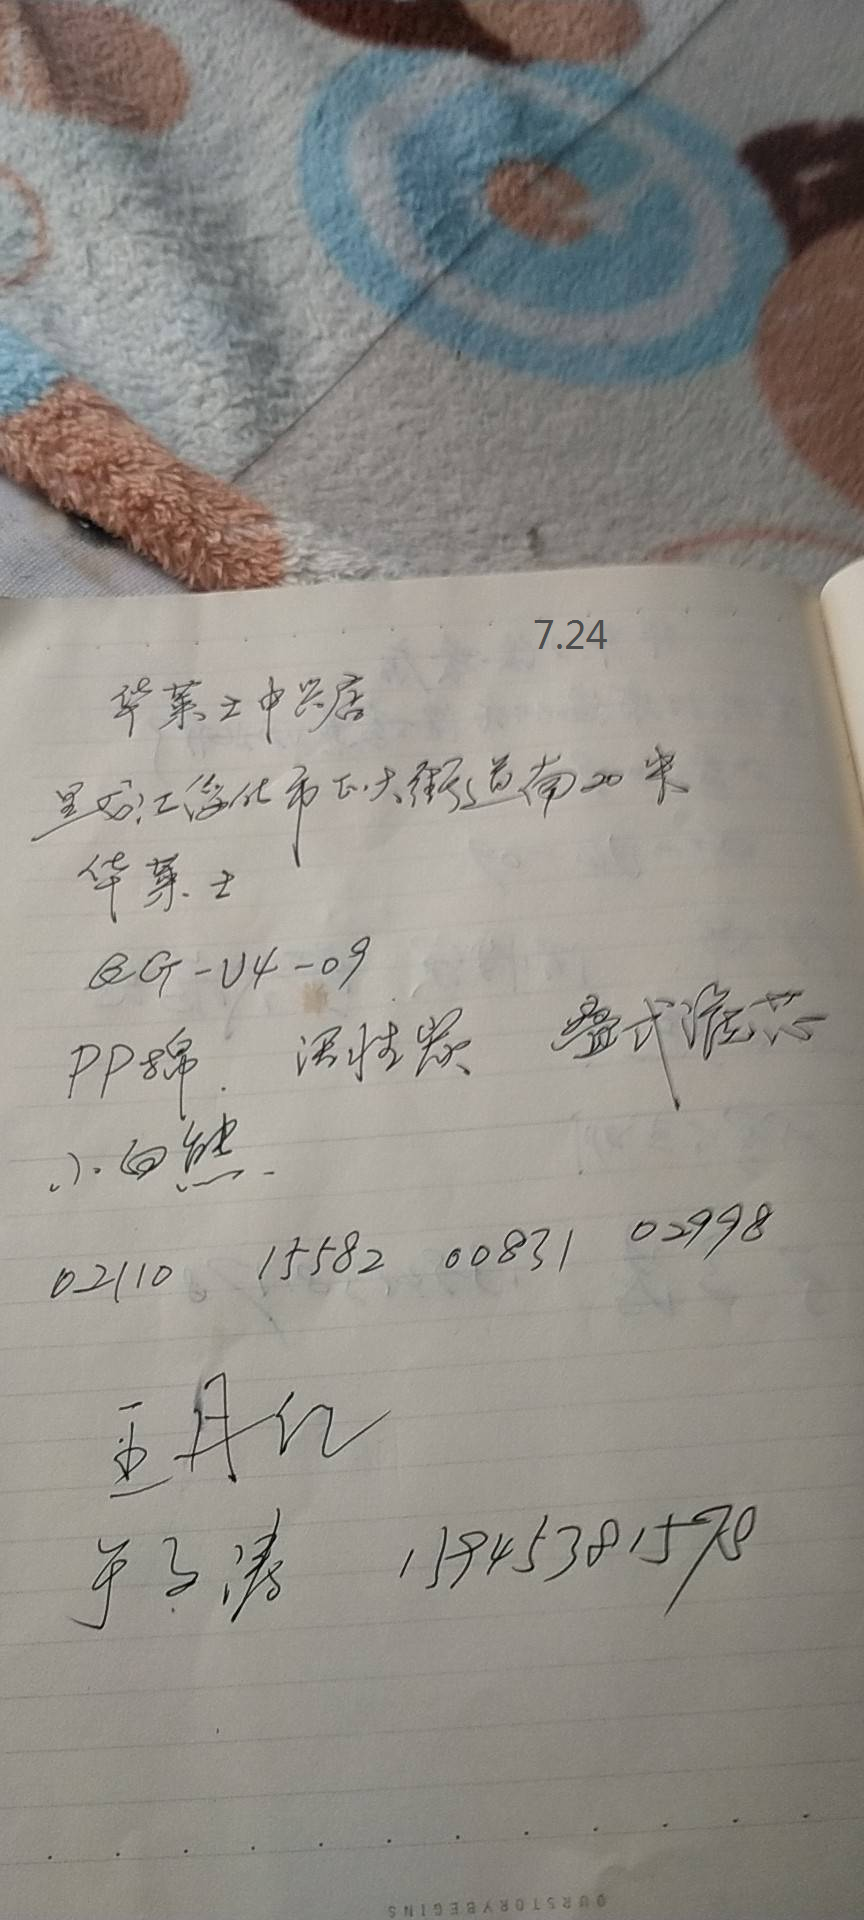 7.24
华莱士中兴店
黑龙江绥化市正大街道南20米
华莱士
QG-U4-09
PP棉 活性炭 叠式滤芯
小白熊
02110 15582 00831 02998
王丹红
于子涛 15945381578
OURSTORYBEGINS